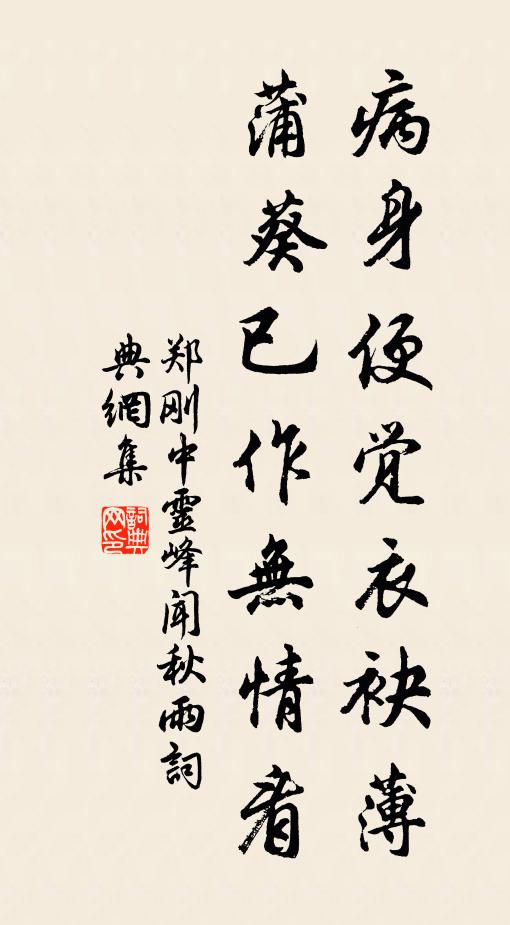 病身便觉衣袂薄
蒲葵已作無情看
郑刚中靈峰闻秋雨詞
典網集
詞典
网印